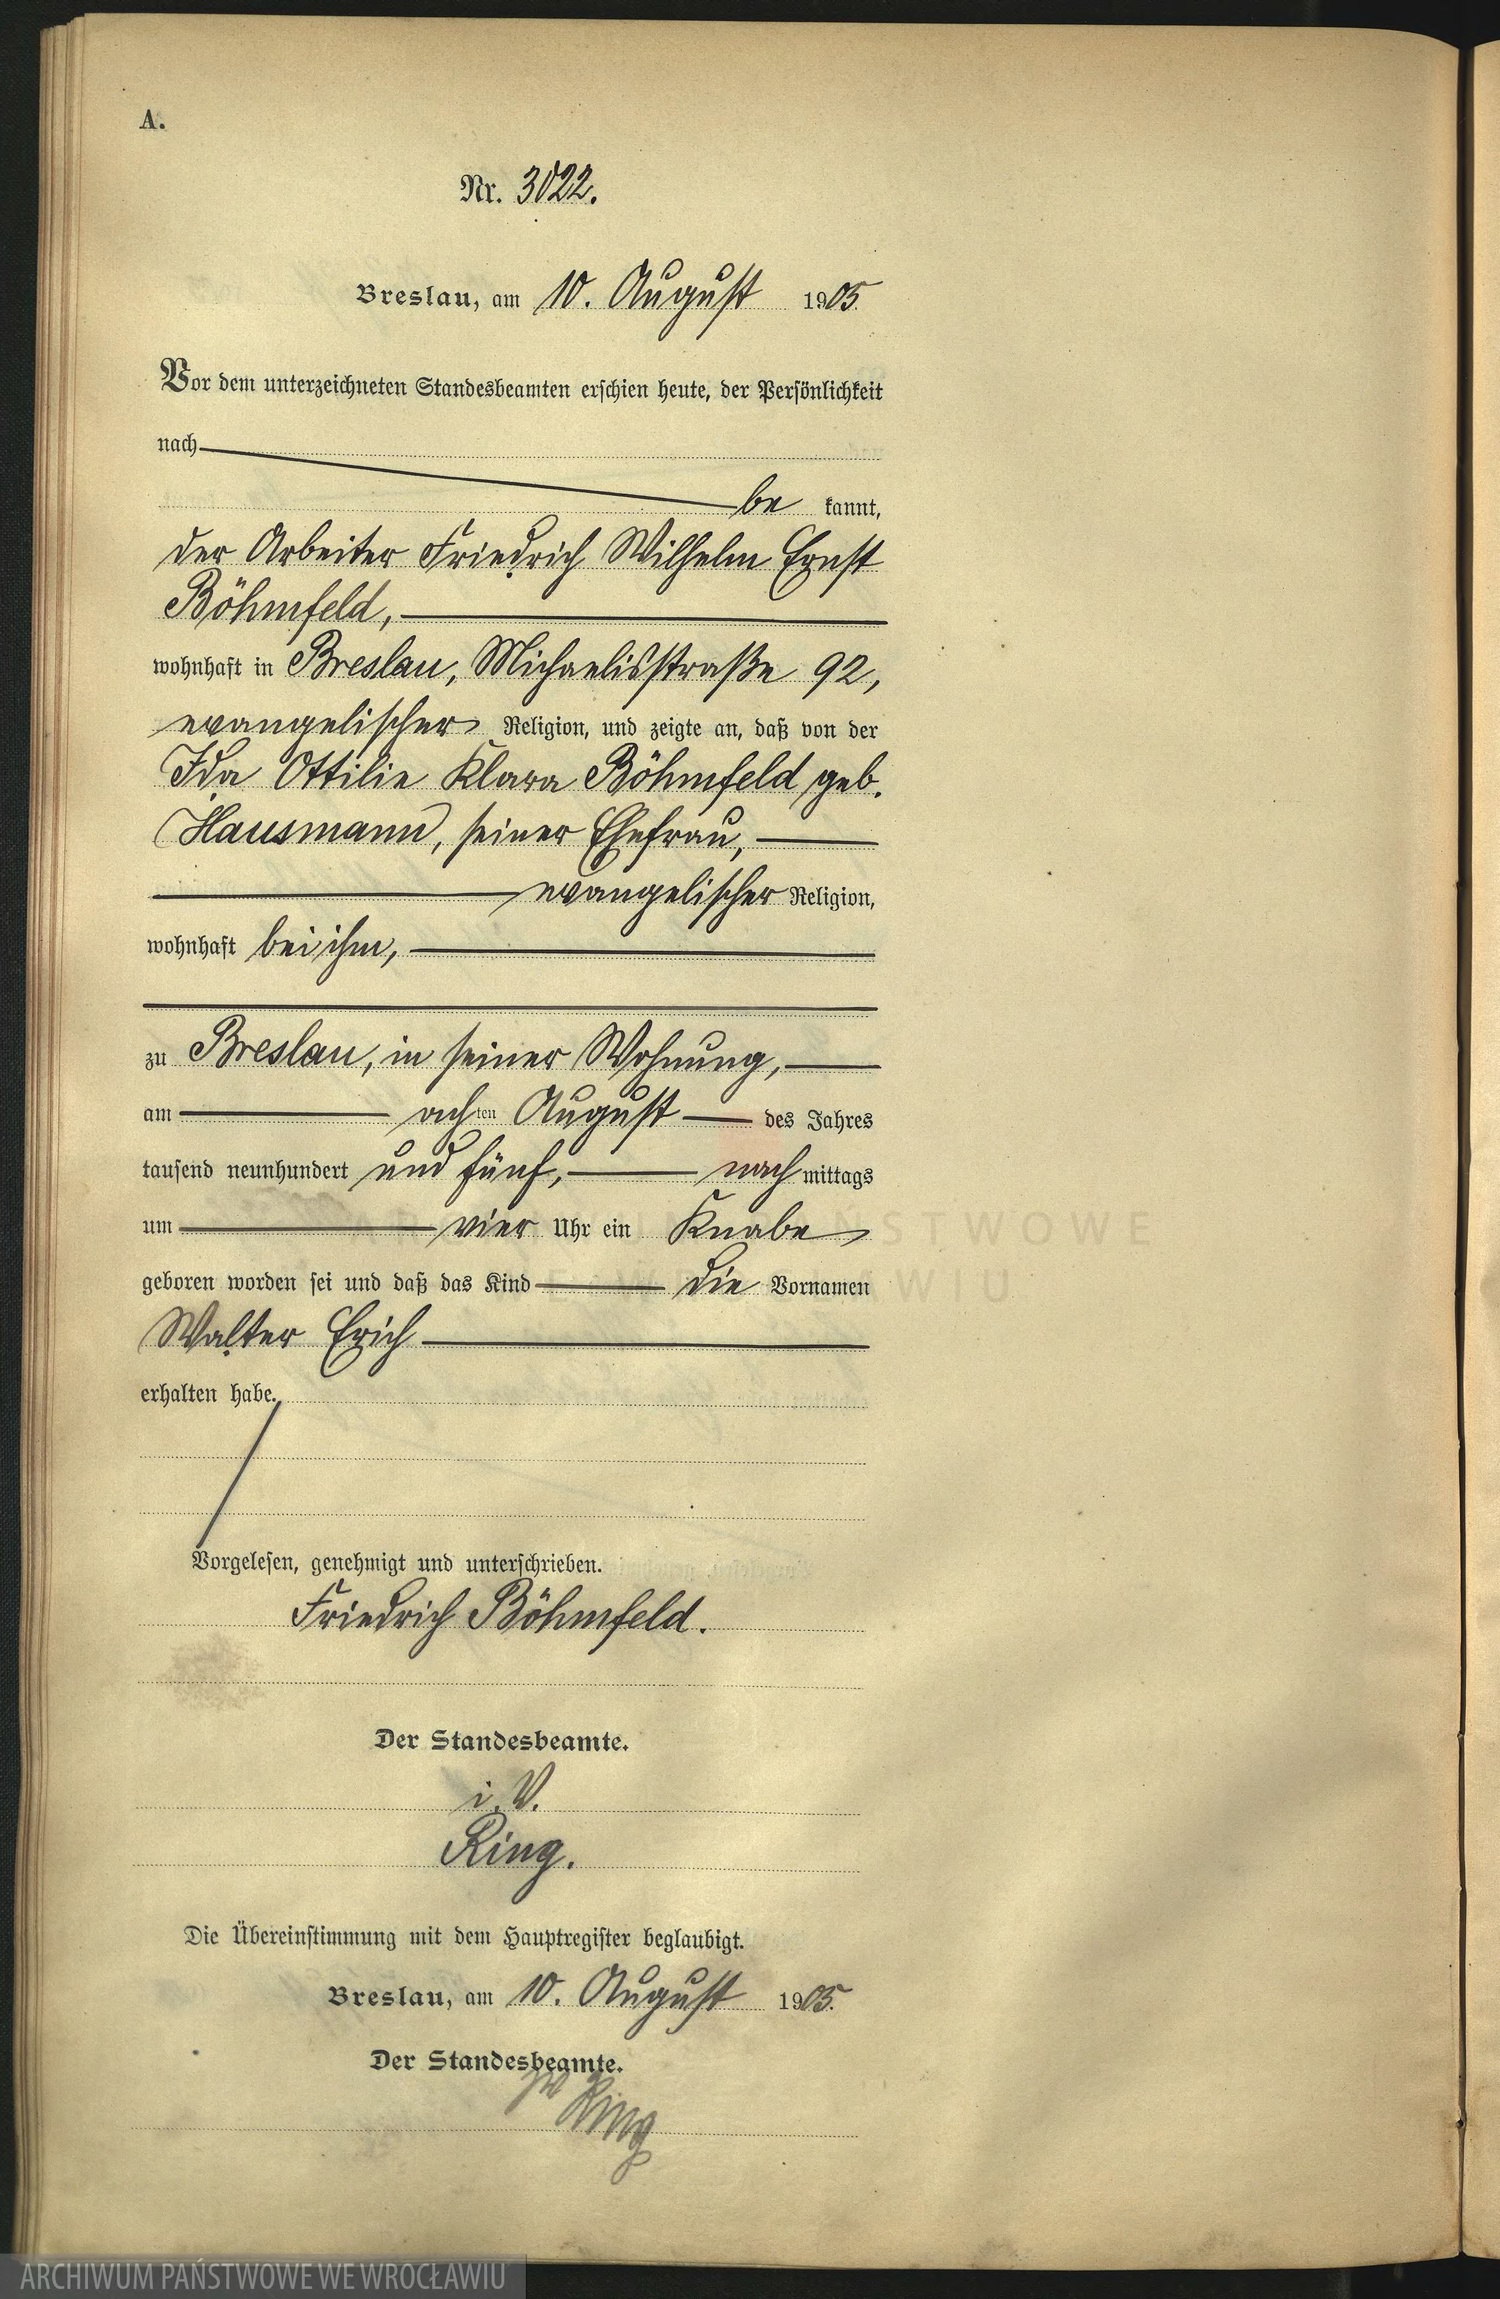 A.
Nr. 3022.
Breslau, am 10. August 1905.
Vor dem unterzeichneten Standesbeamten erschien heute, der Persönlichkeit
nach
be kannt,
der Arbeiter Friedrich Wilhelm Ernst
Böhmfeld,
wohnhaft in Breslau, Michaelisstraße 92,
evangelischer Religion, und zeigte an, daß von der
Ida Ottilie Klara Böhmfeld geb.
Hausmann, seiner Ehefrau,
evangelischer Religion,
wohnhaft bei ihm,
zu Breslau, in seiner Wohnung,
am achten August des Jahres
tausend neunhundert und fünf, nach mittags
um vier Uhr ein Knabe
geboren worden sei und daß das Kind die Vornamen
Walter Erich
erhalten habe.
Vorgelesen, genehmigt und unterschrieben.
Friedrich Böhmfeld.
Der Standesbeamte.
i. V.
Ring.
Die Übereinstimmung mit dem Hauptregister beglaubigt.
Breslau, am 10. August 1905.
Der Standesbeamte.
Ring
ARCHIWUM PAŃSTWOWE WE WROCŁAWIU